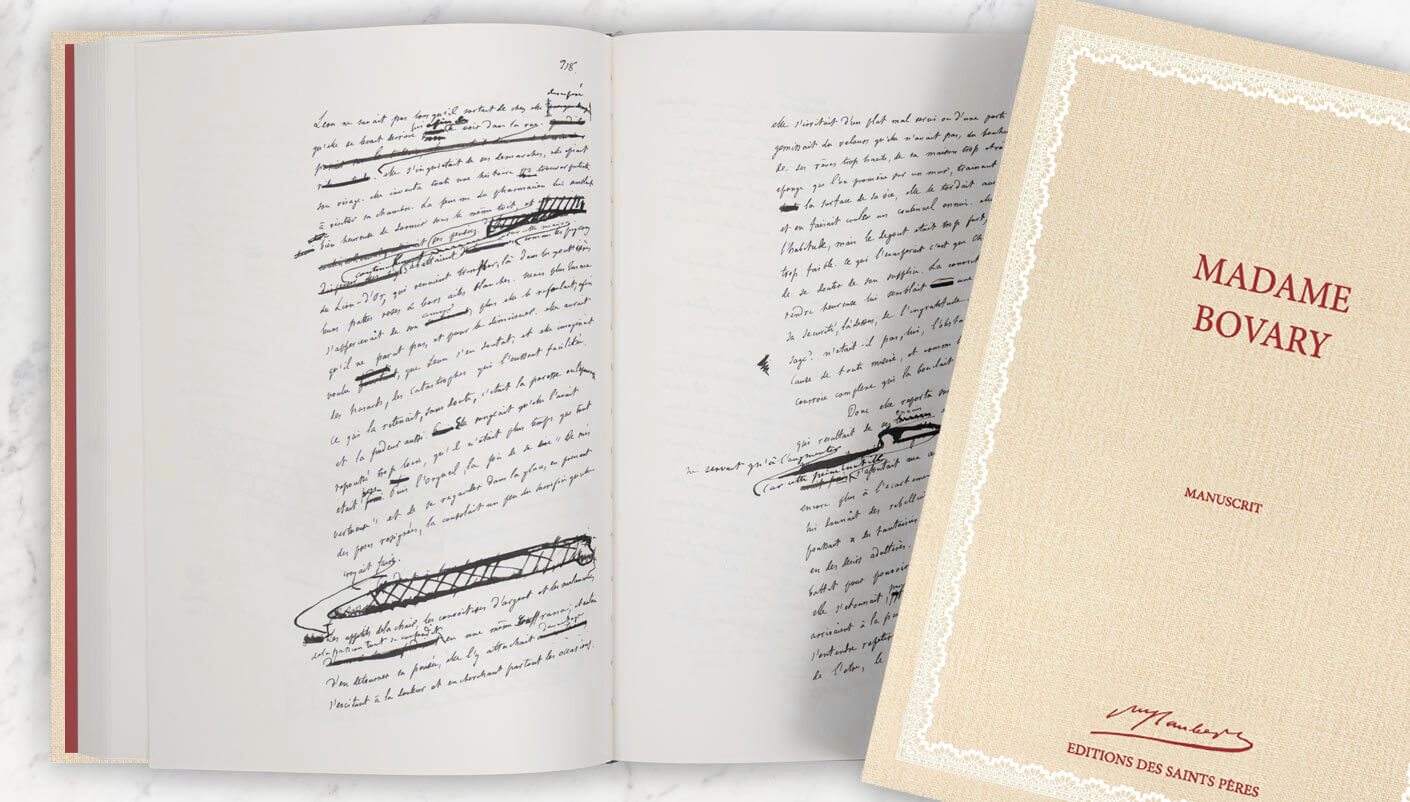 918.
Leon ne savait pas lorsqu'il sortait de chez elle
désespéré
qu'elle se levait derrière lui le voir dans la rue.
elle s'inquiétait de ses demarches, elle épiait
son visage. elle inventa toute une histoire trouver prétexte
à visiter sa chambre. La femme du pharmacien lui semblait
bien heureuse de dormir sous le même toit, et
ses pensées sur cette maison
continuellement s'abattaient comme les pigeons
du Lion-d'Or, qui venaient tremper, là dans les gouttières
leurs pattes roses & leurs ailes blanches. mais plus Emma
s'appercevait de son amour, plus elle le refoulait, afin
qu'il ne parut pas, et pour le diminuer. elle aurait
voulu, que Leon s'en doutat; et elle imaginait
des hasards, des catastrophes qui l'eussent facilité.
ce qui la retenait, sans doute, c'était la paresse ou
et la pudeur aussi Elle songeait qu'elle l'avait
repoussé trop loin, qu'il n'était plus temps que tout
était Puis l'orgueil la joie de se dire "Je suis
vertueuse" et de se regarder dans la glace, en prenant
des poses resignées, la consolait un peu du sacrifice qu'elle
croyait faire.
Les appétits de la chair, les convoitises d'argent et les melancolies
de la passion tout se confondit en une même souffrance; et au lieu
d'en detourner sa pensée, elle l'y attachait davantage
s'excitant à la douleur et en cherchant partout les occasions.
elle s'irritait d'un plat mal servi ou d'une porte
gemissait du velours qu'elle n'avait pas, du bonheur
de ses rêves trop hauts, de sa maison trop
eponge que l'on promène sur un mur, trainant
la surface de sa vie, elle se tordait
et en faisait couler un continuel ennui.
l'habitude, mais le degout était trop fort,
trop faible. ce qui l'exasperait c'est que Ch
de se douter de son supplice. La convict
rendre heureuse lui semblait une
sa securité, là-dessus, de l'ingratitude.
sage? n'etait-il pas, lui, l'obsta
cause de toute misère, et comme
courroie complexe qui la bouclait
Donc elle reporta
qui resultait de ses ennuis
ne servait qu'à l'augmenter
(car cette peine inutile s'ajoutait aux
encore plus à l'ecartement
lui donnait des rebellions
poussait à des fantaisies
en des desirs adultères.
battit pour pouvoir
elle s'etonnait,
arrivaient à la pensée
s'entendre repeter
de l'etre, le
MADAME
BOVARY
MANUSCRIT
EDITIONS DES SAINTS PÈRES